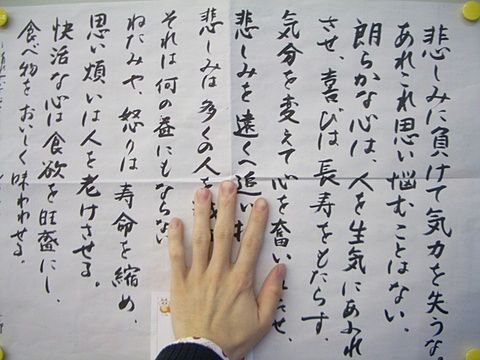 悲しみに負けて気力を失うな。
あれこれ思い悩むことはない。
朗らかな心は、人を生気にあふれ
させ、喜びは長寿をもたらす。
気分を変えて心を奮い せ、
悲しみを遠くへ追い
悲しみは多くの人を
それは何の益にもならない
ねたみや、怒りは寿命を縮め、
思い煩いは人を老けさせる。
快活な心は食欲を旺盛にし、
食べ物をおいしく味わわせる。